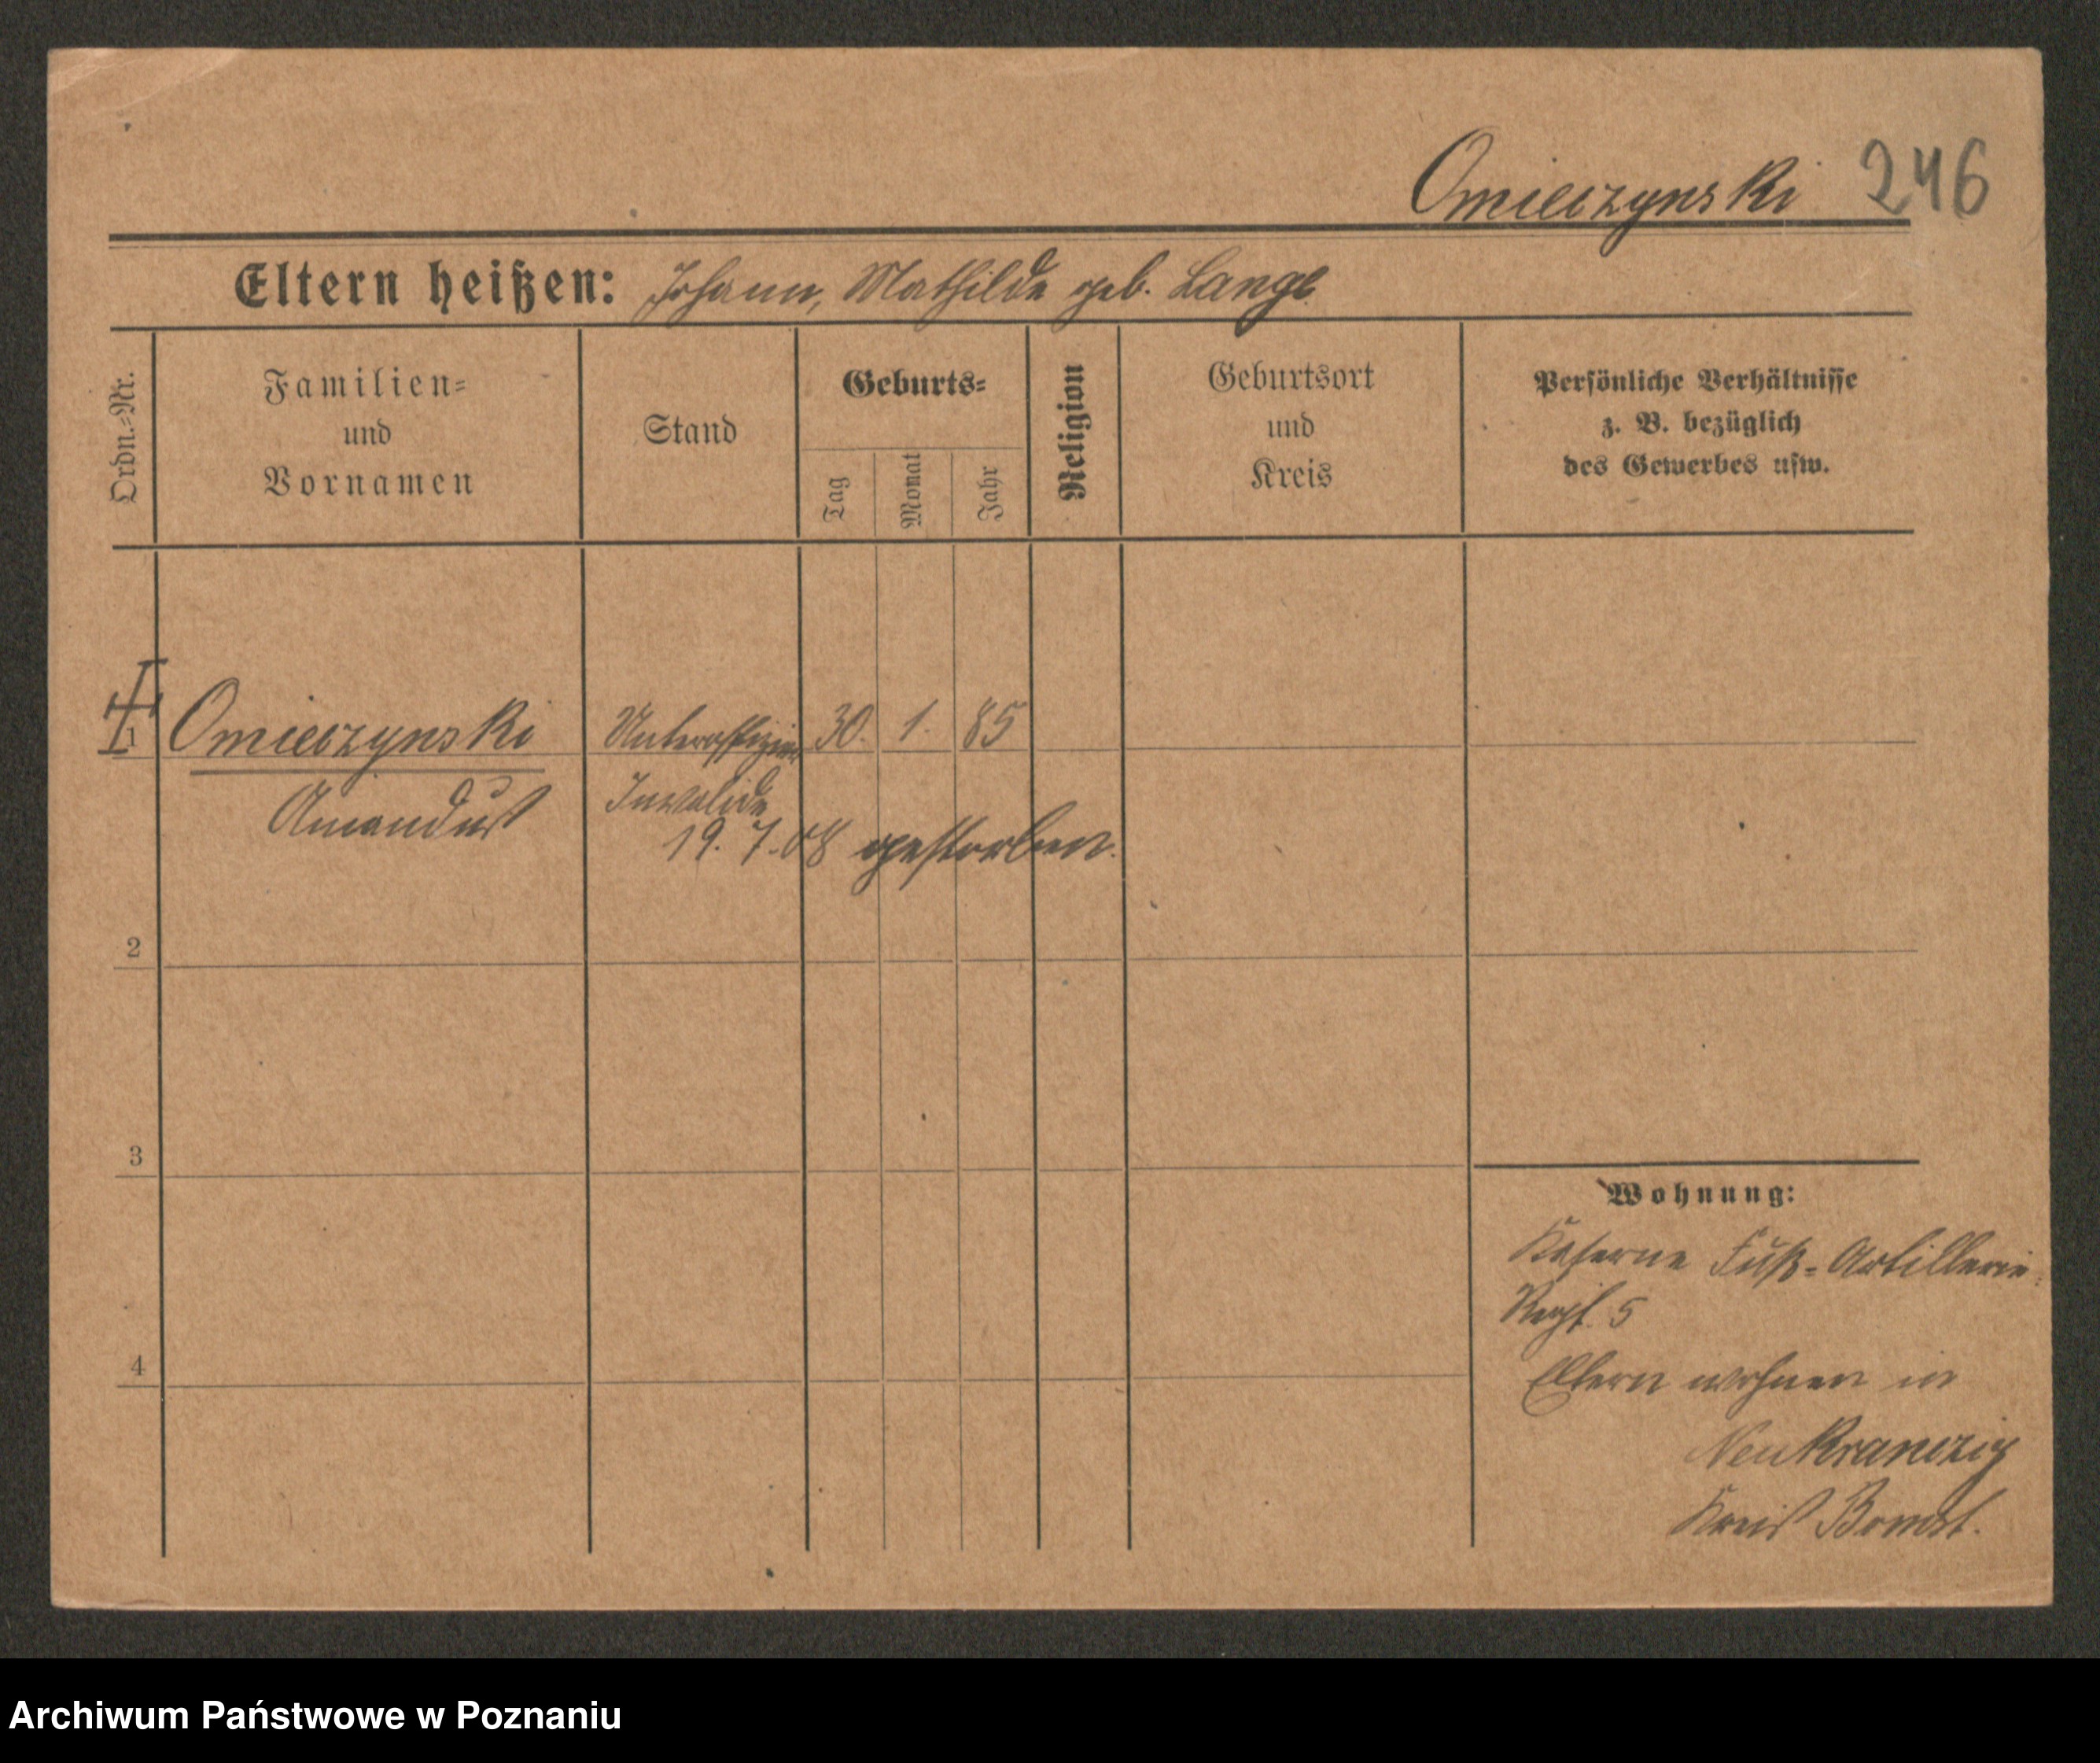 Omieczynski 246
Eltern heißen: Johann, Mathilde geb. Lange
Ordn.=Nr.
Familien=
und
Vornamen
Stand
Geburts=
Tag
Monat
Jahr
Religion
Geburtsort
und
Kreis
Persönliche Verhältnisse
z. B. bezüglich
des Gewerbes usw.
1 Omieczynski Unteroffizier 30. 1. 85
Amandus Invalide
19. 7. 08 gestorben.
2
3
4
Wohnung:
Kaserne Fuß=Artillerie
Regt. 5
Eltern wohnen in
Neu Kranzig
Kreis Bomst.
Archiwum Państwowe w Poznaniu